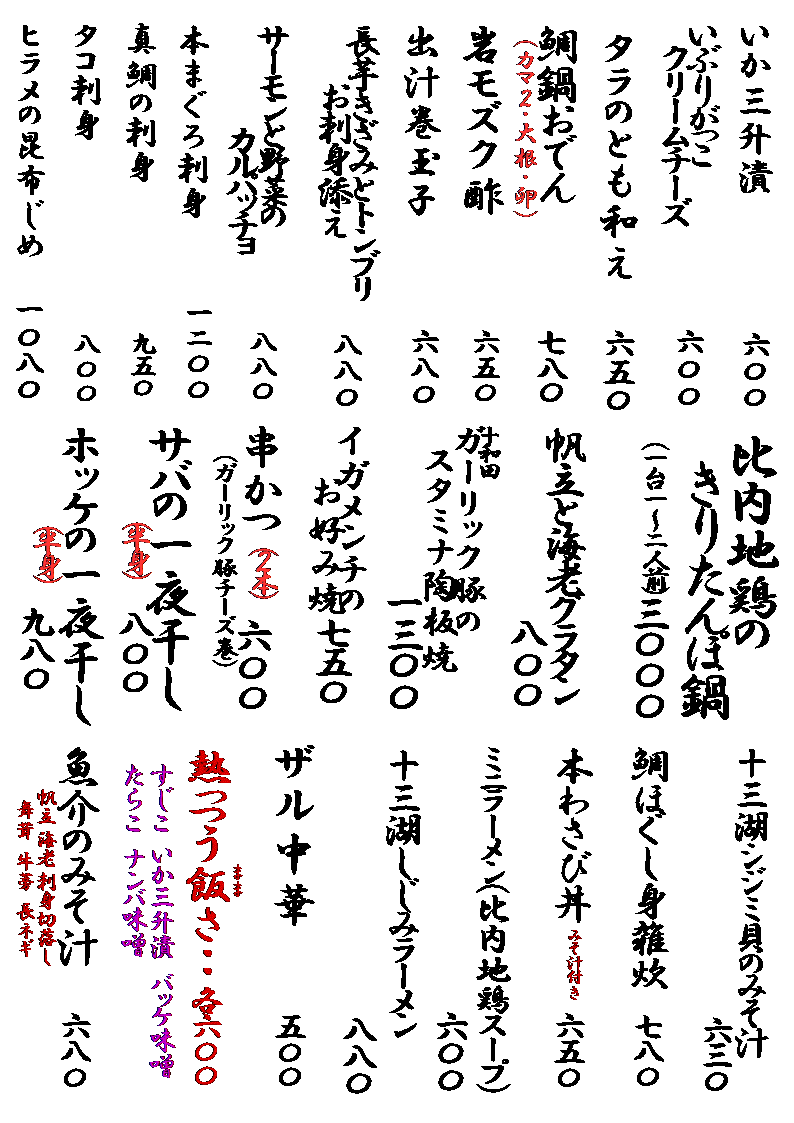 いか三升漬
六〇〇
いぶりがっこ
クリームチーズ
六〇〇
タラのとも和え
六五〇
鯛鍋おでん
(カマ2・大根・卵)
七八〇
岩モズク酢
六五〇
出汁巻玉子
六八〇
長芋きざみとトンブリ
お刺身添え
八八〇
サーモンと野菜の
カルパッチョ
八八〇
本まぐろ刺身
一二〇〇
真鯛の刺身
九五〇
タコ刺身
八〇〇
ヒラメの昆布じめ
一〇八〇
比内地鶏の
きりたんぽ鍋
(一台一〜二人前)
三〇〇〇
帆立と海老グラタン
八〇〇
十和田
ガーリック豚の
スタミナ陶板焼
一三〇〇
イガメンチの
お好み焼
七五〇
串かつ(2本)
(ガーリック豚チーズ巻)
六〇〇
サバの一夜干し
(半身)
八〇〇
ホッケの一夜干し
(半身)
九八〇
十三湖シジミ貝のみそ汁
六三〇
鯛ほぐし身雑炊
七八〇
本わさび丼
みそ汁付き
六五〇
ミニラーメン(比内地鶏スープ)
六〇〇
十三湖しじみラーメン
八八〇
ザル中華
五〇〇
熱っつう飯さ・・各六〇〇
まま
すじこ いか三升漬 バッケ味噌
たらこ ナンバ味噌
魚介のみそ汁
帆立 海老 刺身切落し
舞茸 牛蒡 長ネギ
六八〇